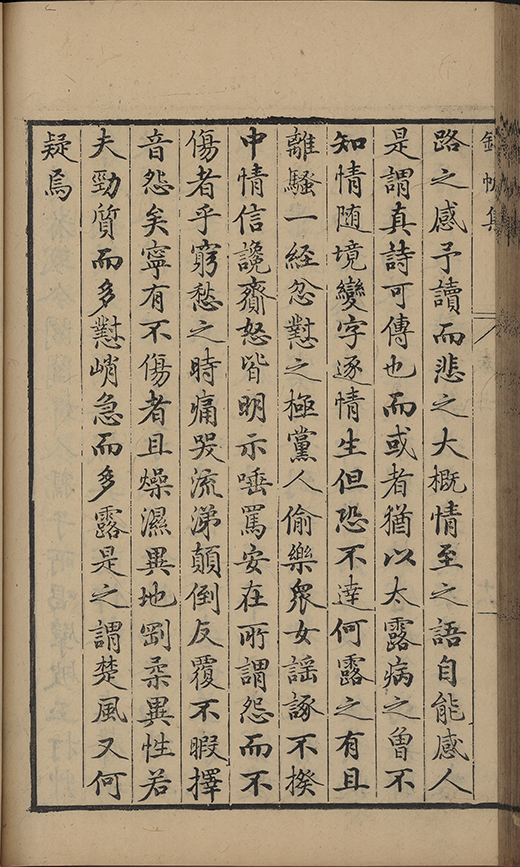 錦帆集
路之感予讀而悲之大概情至之語自能感人
是謂真詩可傳也而或者猶以太露病之曾不
知情随境變字逐情生但恐不達何露之有且
離騷一經忿懟之極黨人偷樂衆女謡諑不揆
中情信讒齎怒皆明示唾罵安在所謂怨而不
傷者乎窮愁之時痛哭流涕顛倒反覆不暇擇
音怨矣寧有不傷者且燥濕異地剛柔異性若
夫勁質而多懟峭急而多露是之謂楚風又何
疑焉